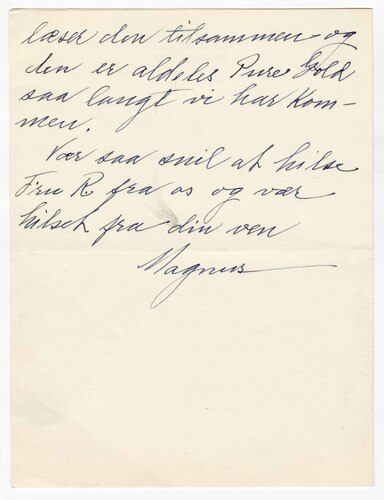 læser den tilsammen og
den er aldeles Pure Gold
saa langt vi har Kom-
men.
Vær saa snil at hilse
Fru R fra os og vær
hilset fra din ven
Magnus